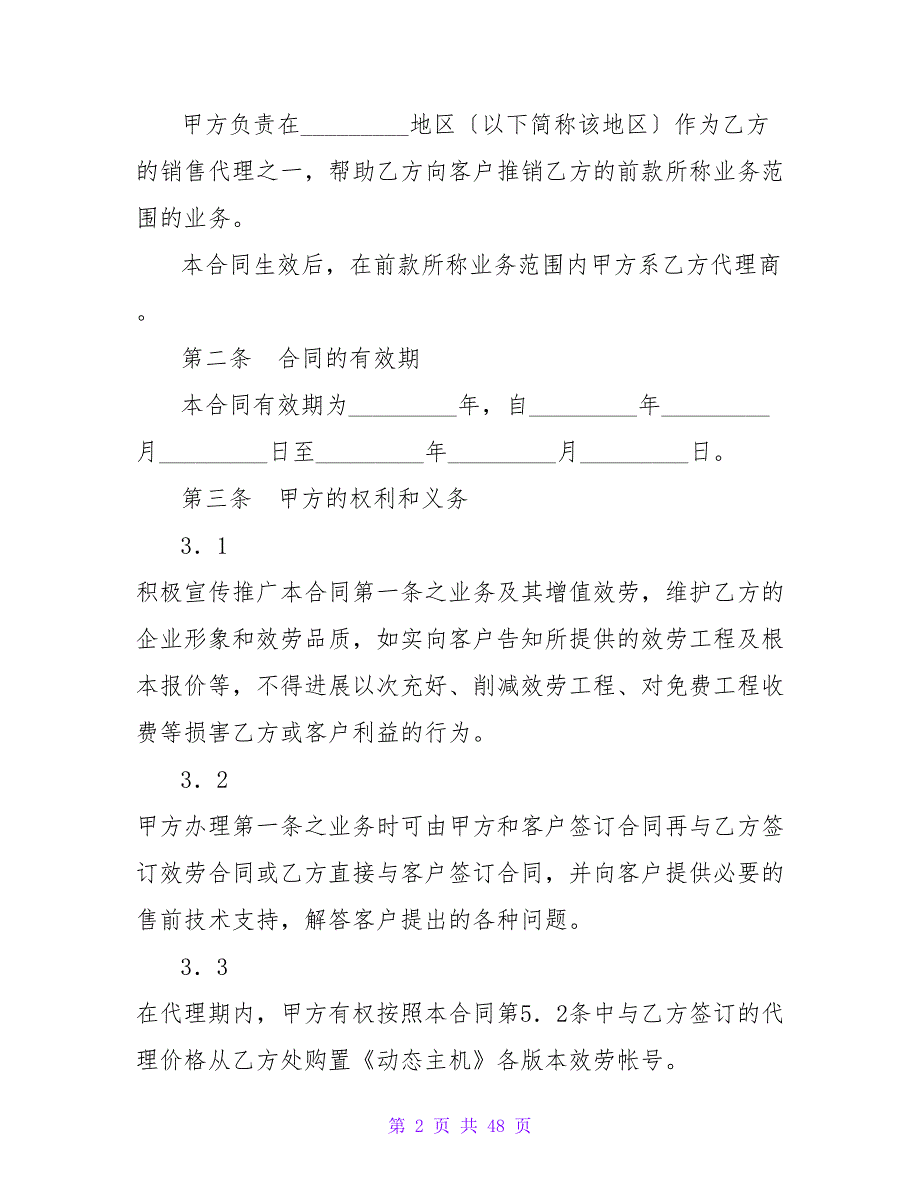 甲方负责在_________地区〔以下简称该地区〕作为乙方
的销售代理之一，帮助乙方向客户推销乙方的前款所称业务范
围的业务。
本合同生效后，在前款所称业务范围内甲方系乙方代理商
。
第二条　合同的有效期
本合同有效期为_________年，自_________年_________
月_________日至_________年_________月_________日。
第三条　甲方的权利和义务
3．1
积极宣传推广本合同第一条之业务及其增值效劳，维护乙方的
企业形象和效劳品质，如实向客户告知所提供的效劳工程及根
本报价等，不得进展以次充好、削减效劳工程、对免费工程收
费等损害乙方或客户利益的行为。
3．2
甲方办理第一条之业务时可由甲方和客户签订合同再与乙方签
订效劳合同或乙方直接与客户签订合同，并向客户提供必要的
售前技术支持，解答客户提出的各种问题。
3．3
在代理期内，甲方有权按照本合同第5．2条中与乙方签订的代
理价格从乙方处购置《动态主机》各版本效劳帐号。
第 2 页 共 48 页